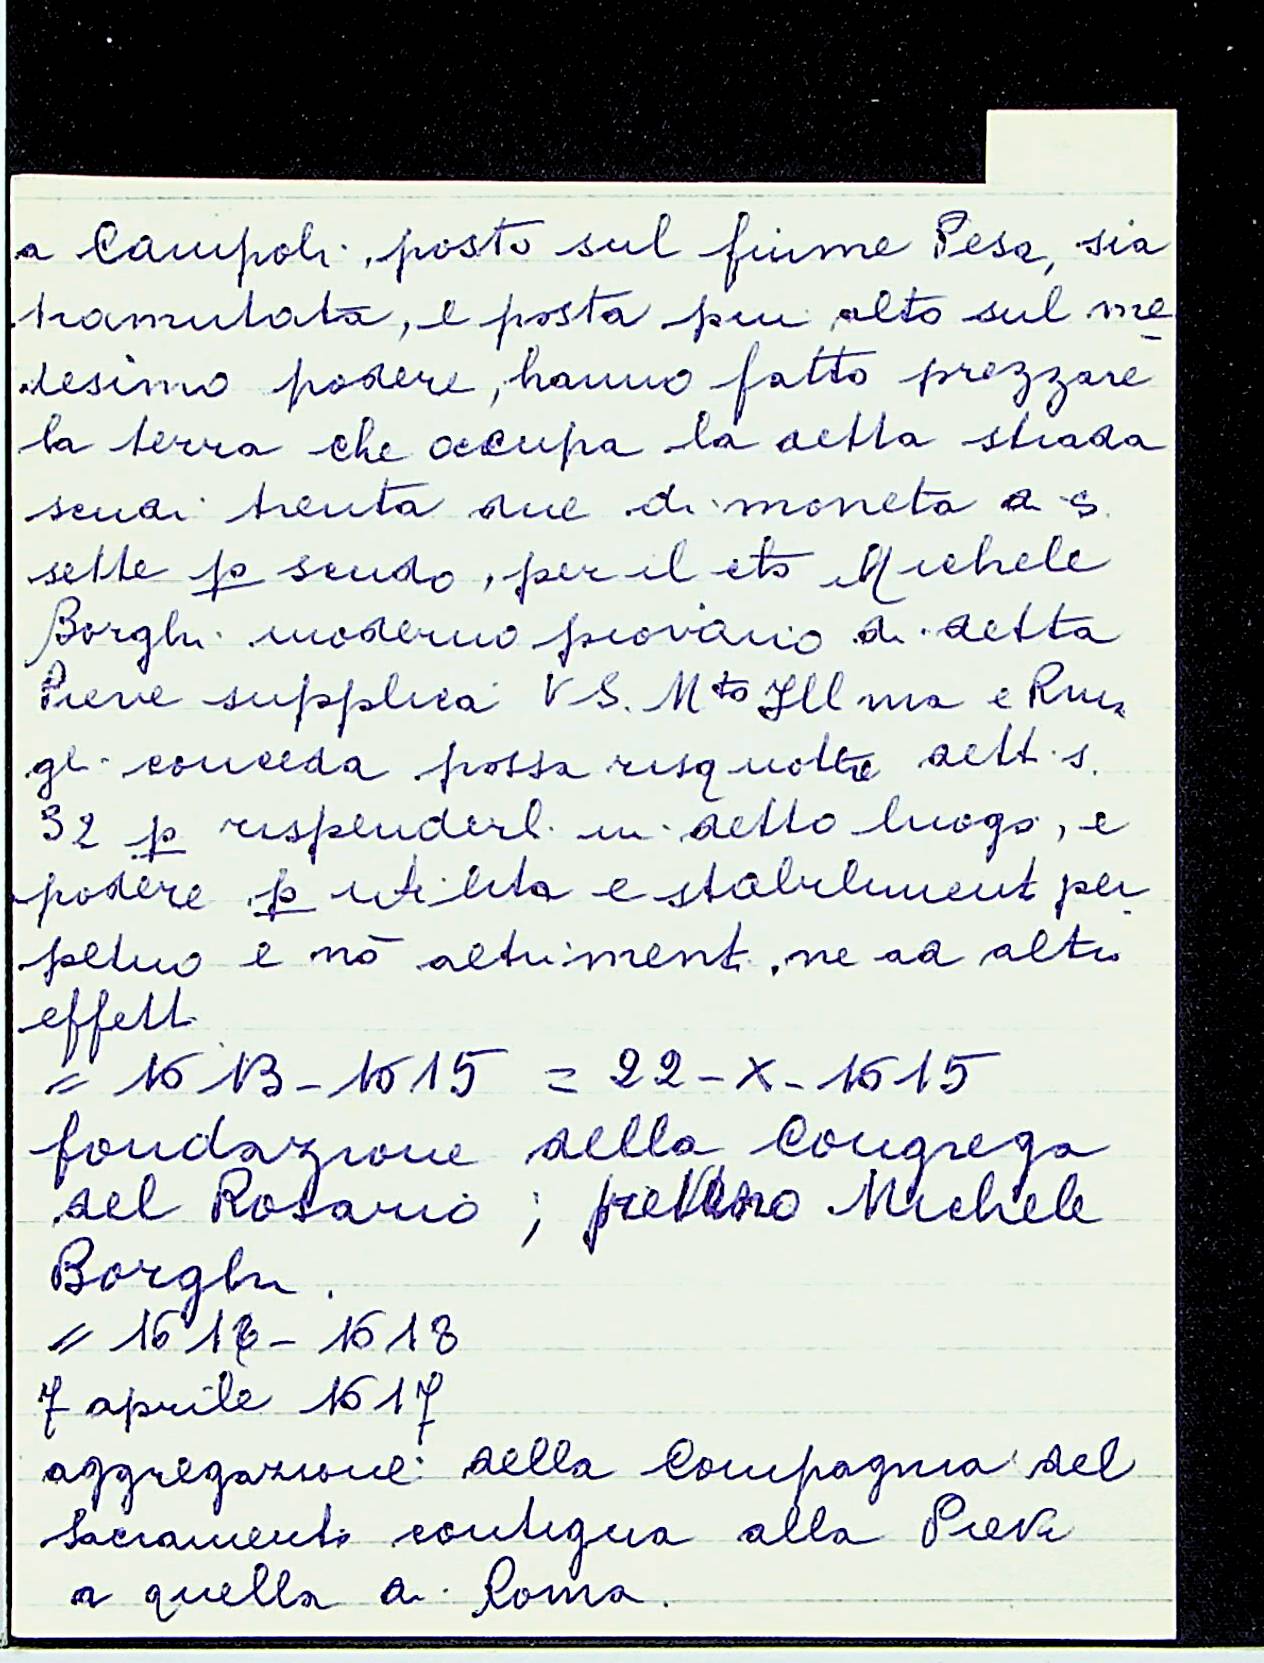 a Campoli, posto sul fiume Pesa, sia
tramutata, e posta piu alto sul me
desimo podere, hanno fatto prezzare
la terra che occupa la detta strada
scudi trenta due di moneta di s.
sette p scudo, per il cto Michele
Borghi moderno piovano di detta
Pieve supplica VS. Mto Illma e Rma
gli conceda possa risquotte dett. s.
32 p rispenderli in detto luogo, e
podere p utilita e stabiliment per
petuo e nō altriment. ne ad altro
effett.
= 1613 - 1615 = 22 - X - 1615
fondazione della Congrega
del Rosario; Michele
Borghi.
= 1618 - 1618
7 aprile 1617
aggregazione della Compagnia del
Sacramento contigua alla Pieve
a quella di Roma.